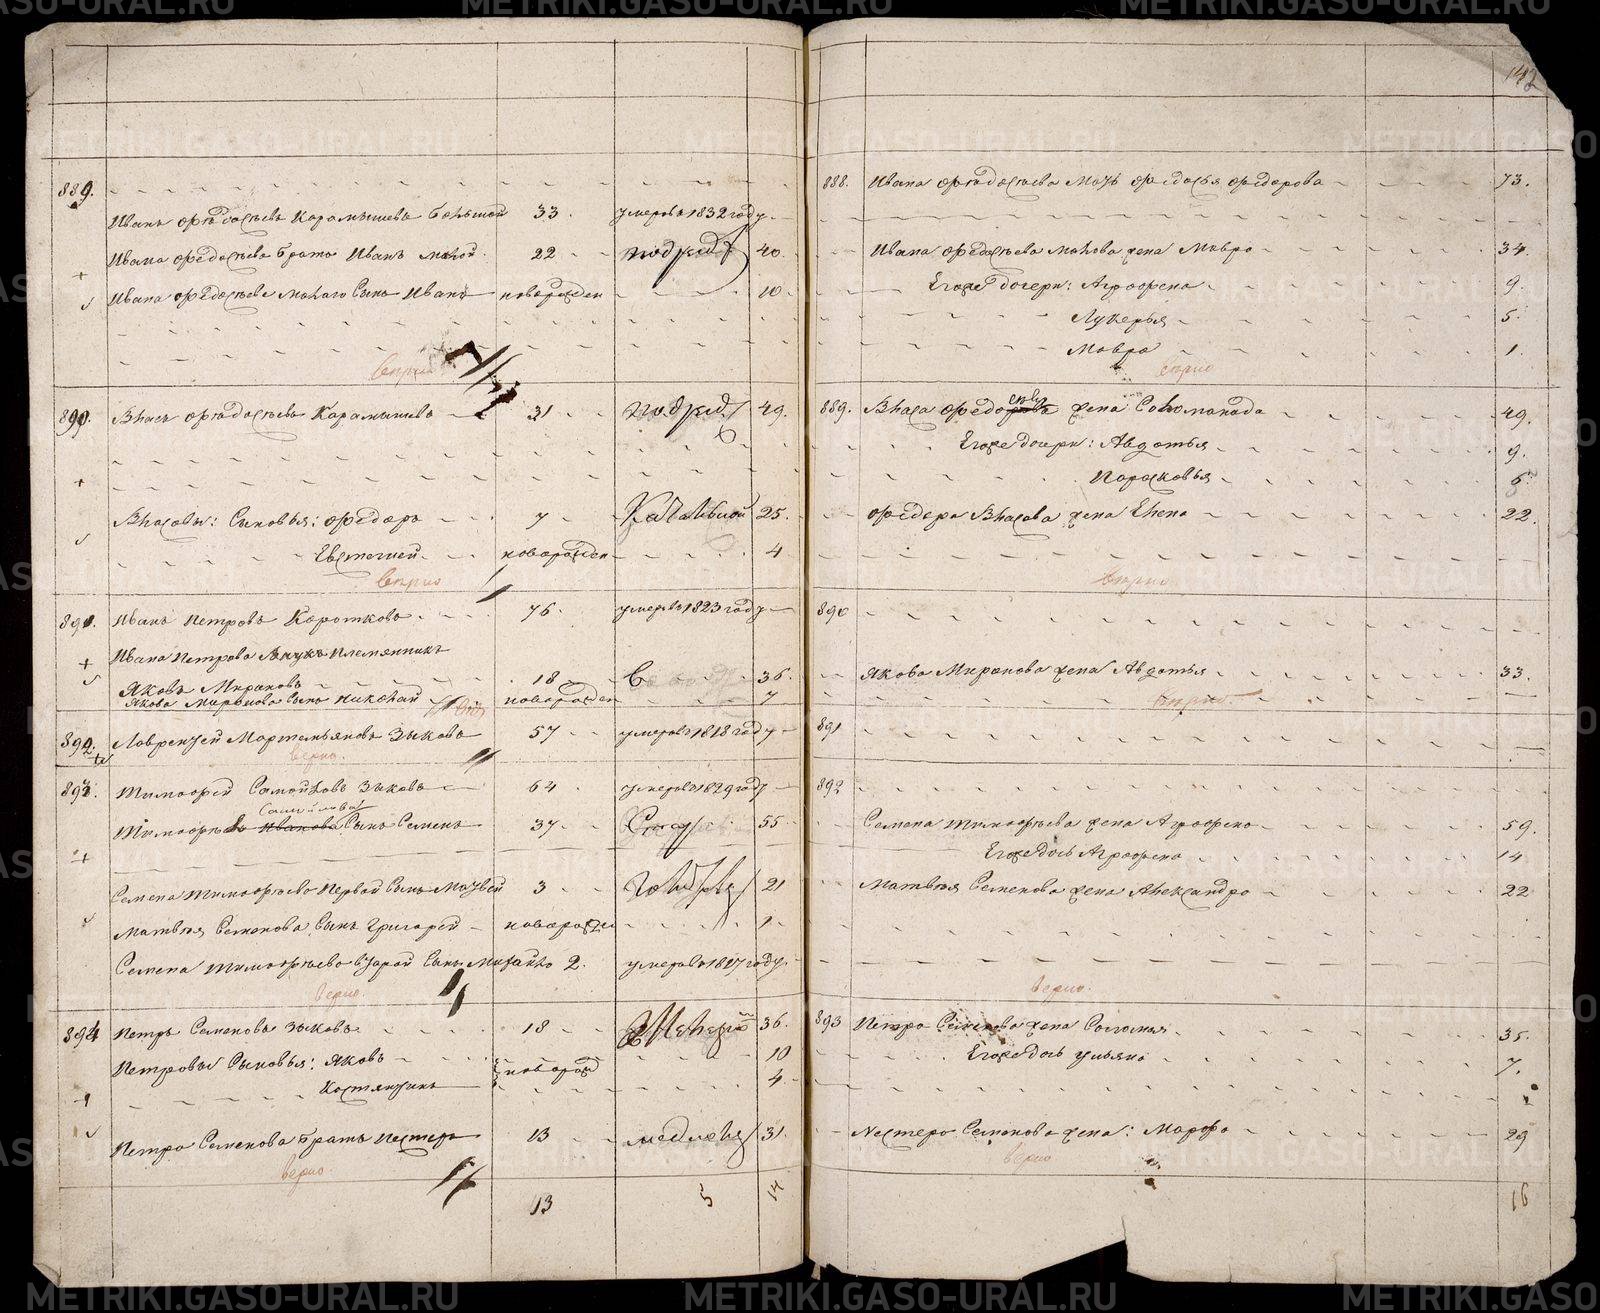 142
889.
Иванъ Ѳедосѣевъ Карамышевъ большой 33. умеръ въ 1832 году
Ивана Ѳедосѣева братъ Иванъ малой 22 40.
Ивана Ѳедосѣева малаго сынъ Иванъ новорожден 10.
верно
890. Власъ Ѳедосѣевъ Карамышевъ 31 49.
Власовы: Сыновья: Ѳедоръ 7 25.
Евстегней новорожден 4
верно
891. Иванъ Петровъ Коротковъ 76. умеръ въ 1823 году
Ивана Петрова внукъ племянникъ
Яковъ Мироновъ 18 36.
Якова Миронова сынъ Николай новорожден 7
892. Лаврентей Мартемьяновъ Зыковъ 57 умеръ въ 1818 году
верно.
893. Тимоѳей Самойловъ Зыковъ 64 умеръ въ 1829 году
Самойлова
Тимоѳеевъ Иванова Сынъ Семенъ 37 55
Семена Тимоѳѣева первой сынъ Матвей 3 21
Матвея Семенова сынъ Григорей новорожден 1
Семена Тимоѳѣева второй сынъ Михайло 2. умеръ въ 1817 году
верно.
894 Петръ Семеновъ Зыковъ 18 36.
Петровы Сыновья: Яковъ новорожд 10
Костянтинъ 4.
Петра Семенова братъ Нестеръ 13 31.
верно
13 5 14
888. Ивана Ѳедосѣева мать Ѳедосья Ѳедорова 73.
Ивана Ѳедосѣева малова жена Мавра 34.
Егоже дочери: Аграфена 9.
Лукерья 5.
Мавра 1.
верно
889. Власа Ѳедо жена Соломанида 49.
Егоже дочери: Авдотья 9.
Парасковья 6
Ѳедора Власова жена Елена 22.
верно
890
Якова Миронова жена Авдотья 33.
верно
891
892
Семена Тимоѳѣева жена Аграфена 59.
Егоже дочь Аграфена 14
Матвея Семенова жена Александра 22
верно.
893 Петра Семенова жена Саломея 35.
Егоже дочь Ульяна 7.
Нестера Семенова жена: Марфа 29
верно
16
METRIKI.GASO-URAL.RU